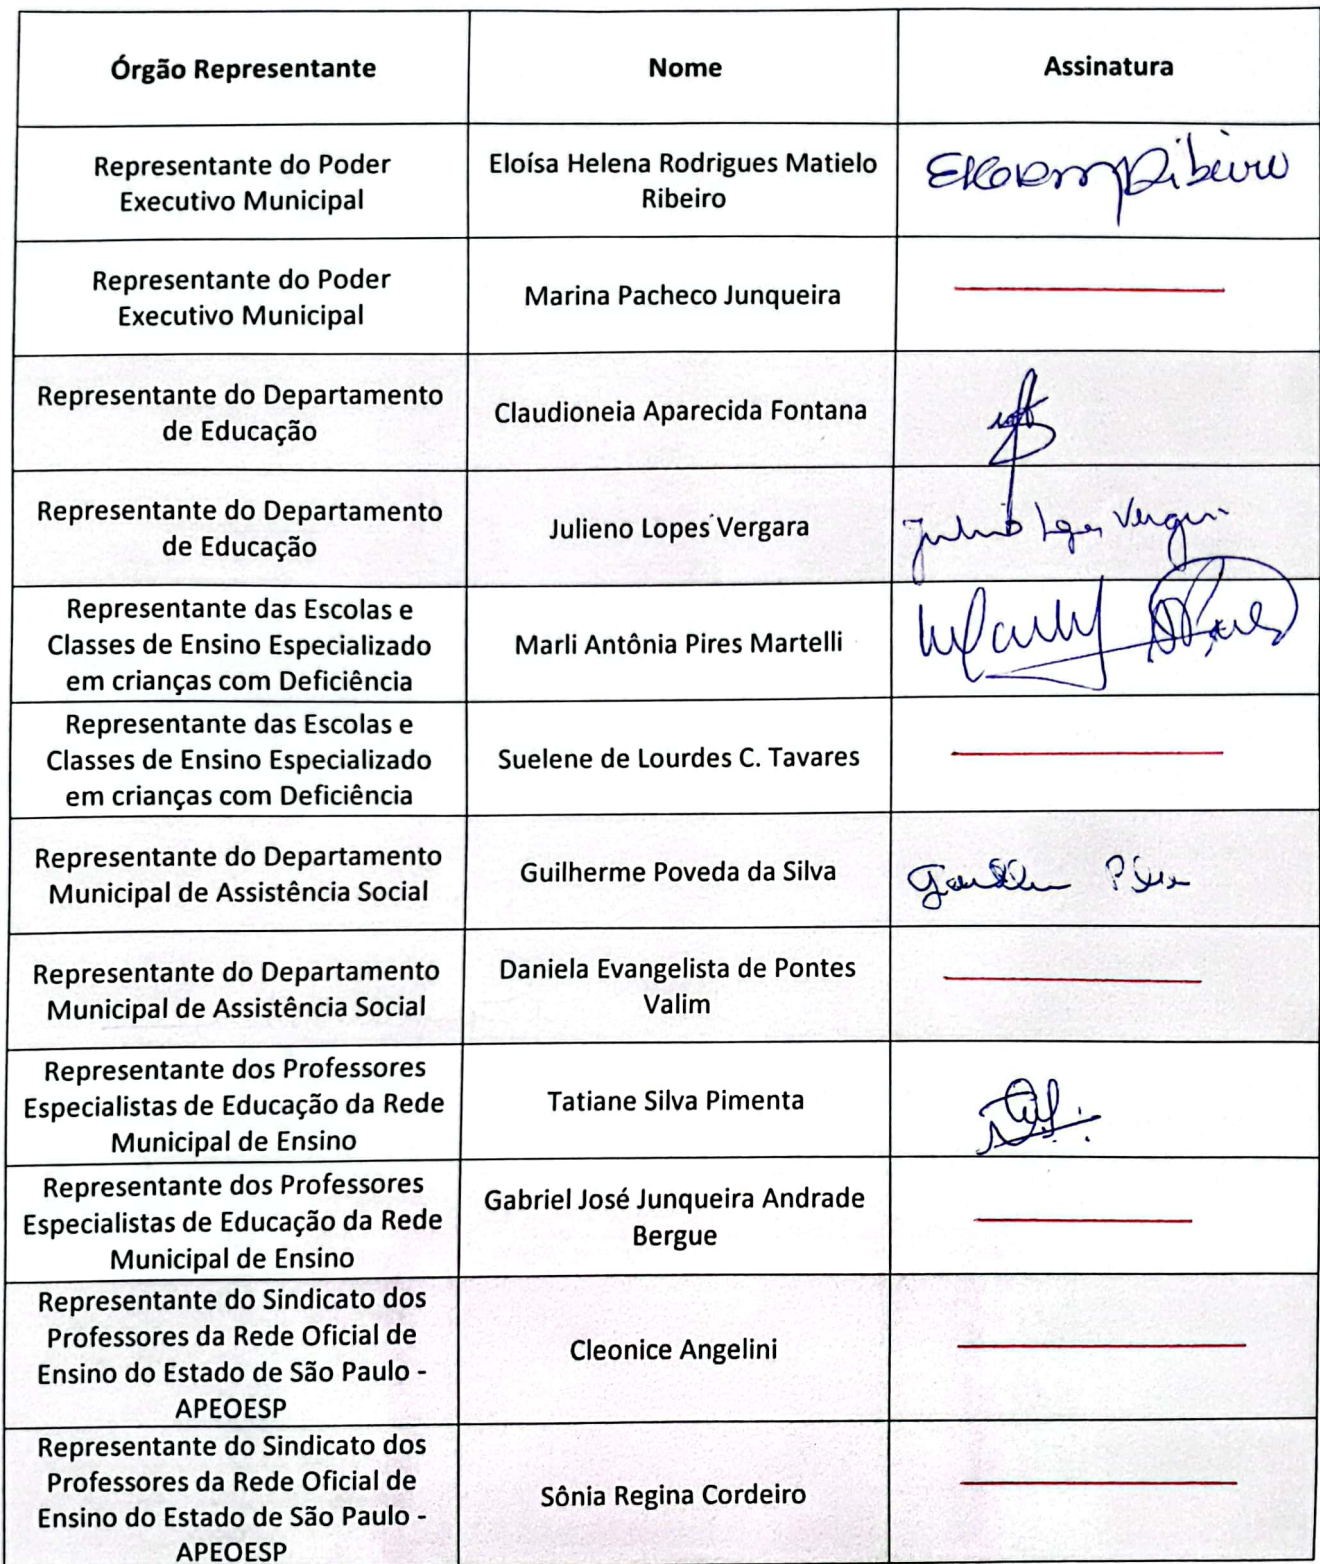 Órgão Representante
Nome
Assinatura
Representante do Poder
Executivo Municipal
Eloísa Helena Rodrigues Matielo
Ribeiro
Ribeiro
Representante do Poder
Executivo Municipal
Marina Pacheco Junqueira
Representante do Departamento
de Educação
Claudioneia Aparecida Fontana
Representante do Departamento
de Educação
Julieno Lopes Vergara
Representante das Escolas e
Classes de Ensino Especializado
em crianças com Deficiência
Marli Antônia Pires Martelli
Representante das Escolas e
Classes de Ensino Especializado
em crianças com Deficiência
Suelene de Lourdes C. Tavares
Representante do Departamento
Municipal de Assistência Social
Guilherme Poveda da Silva
Representante do Departamento
Municipal de Assistência Social
Daniela Evangelista de Pontes
Valim
Representante dos Professores
Especialistas de Educação da Rede
Municipal de Ensino
Tatiane Silva Pimenta
Representante dos Professores
Especialistas de Educação da Rede
Municipal de Ensino
Gabriel José Junqueira Andrade
Bergue
Representante do Sindicato dos
Professores da Rede Oficial de
Ensino do Estado de São Paulo -
APEOESP
Cleonice Angelini
Representante do Sindicato dos
Professores da Rede Oficial de
Ensino do Estado de São Paulo -
APEOESP
Sônia Regina Cordeiro